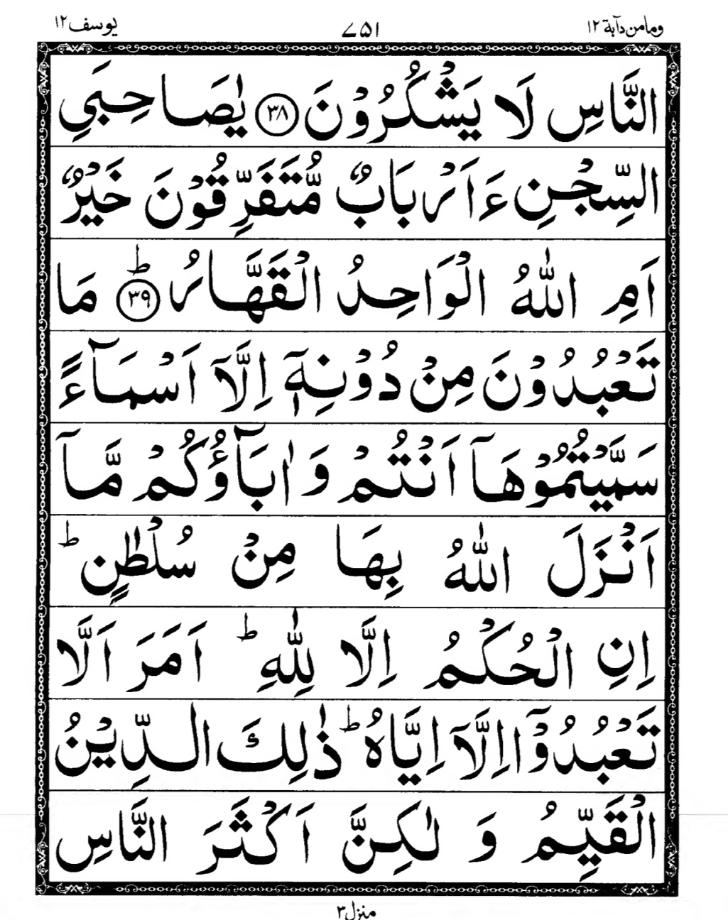 یوسف ۱۲ ۷۵۱ ومامن دآبة ۱۲
النَّاسِ لَا يَشْكُرُوْنَ ﴿۳۸﴾ يٰصَاحِبَىِ
السِّجْنِ ءَاَرْبَابٌ مُّتَفَرِّقُوْنَ خَيْرٌ
اَمِ اللّٰهُ الْوَاحِدُ الْقَهَّارُ ﴿۳۹﴾ؕ مَا
تَعْبُدُوْنَ مِنْ دُوْنِهٖۤ اِلَّاۤ اَسْمَآءً
سَمَّيْتُمُوْهَاۤ اَنْتُمْ وَاٰبَآؤُكُمْ مَّاۤ
اَنْزَلَ اللّٰهُ بِهَا مِنْ سُلْطٰنٍؕ
اِنِ الْحُكْمُ اِلَّا لِلّٰهِؕ اَمَرَ اَلَّا
تَعْبُدُوْۤا اِلَّاۤ اِيَّاهُؕ ذٰلِكَ الدِّيْنُ
الْقَيِّمُ وَ لٰكِنَّ اَكْثَرَ النَّاسِ
منزل۳